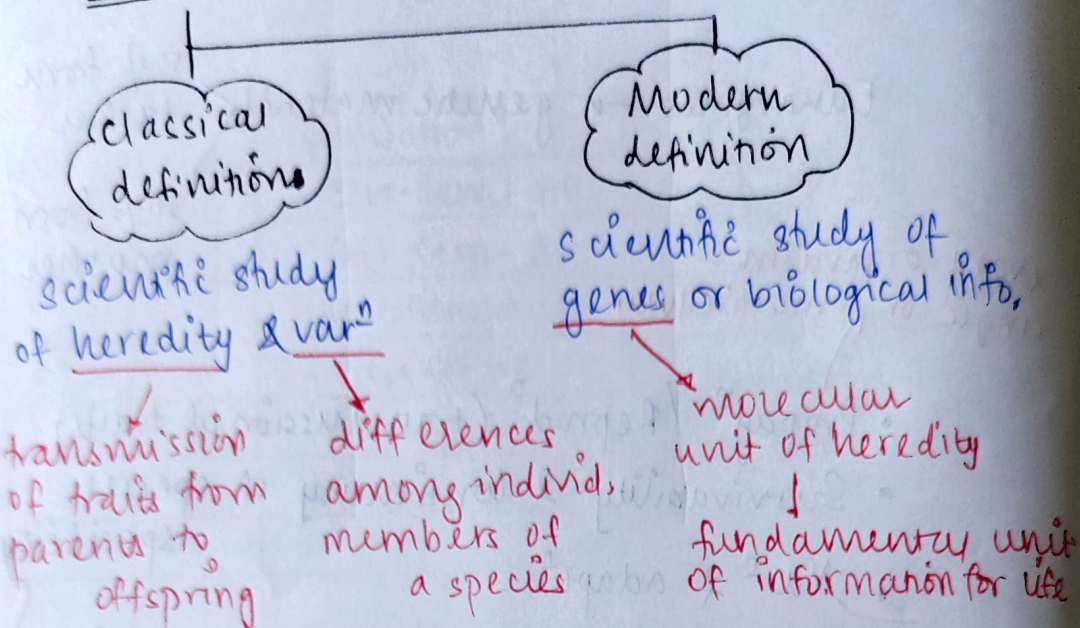 classical
definition
scientific study
of heredity & varⁿ
transmission
of traits from
parents to
offspring
differences
among individ.
members of
a species
Modern
definition
scientific study of
genes or biological info.
molecular
unit of heredity
fundamental unit
of information for life